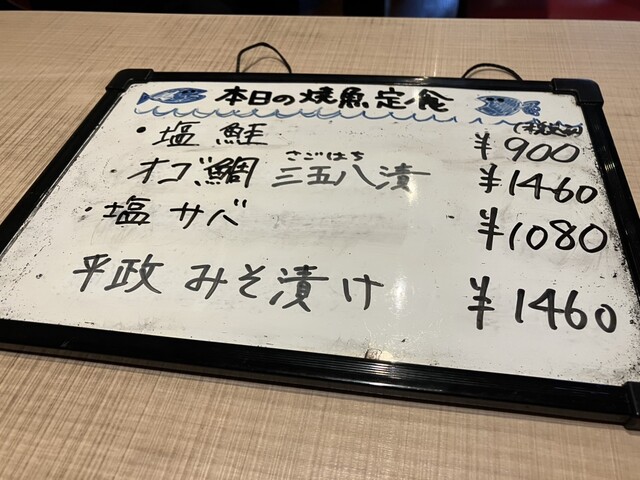 本日の焼魚定食
(税込)
・塩鮭 ¥900
さごはち
・オゴ鯛 三五八漬 ¥1460
・塩サバ ¥1080
平政 みそ漬け ¥1460